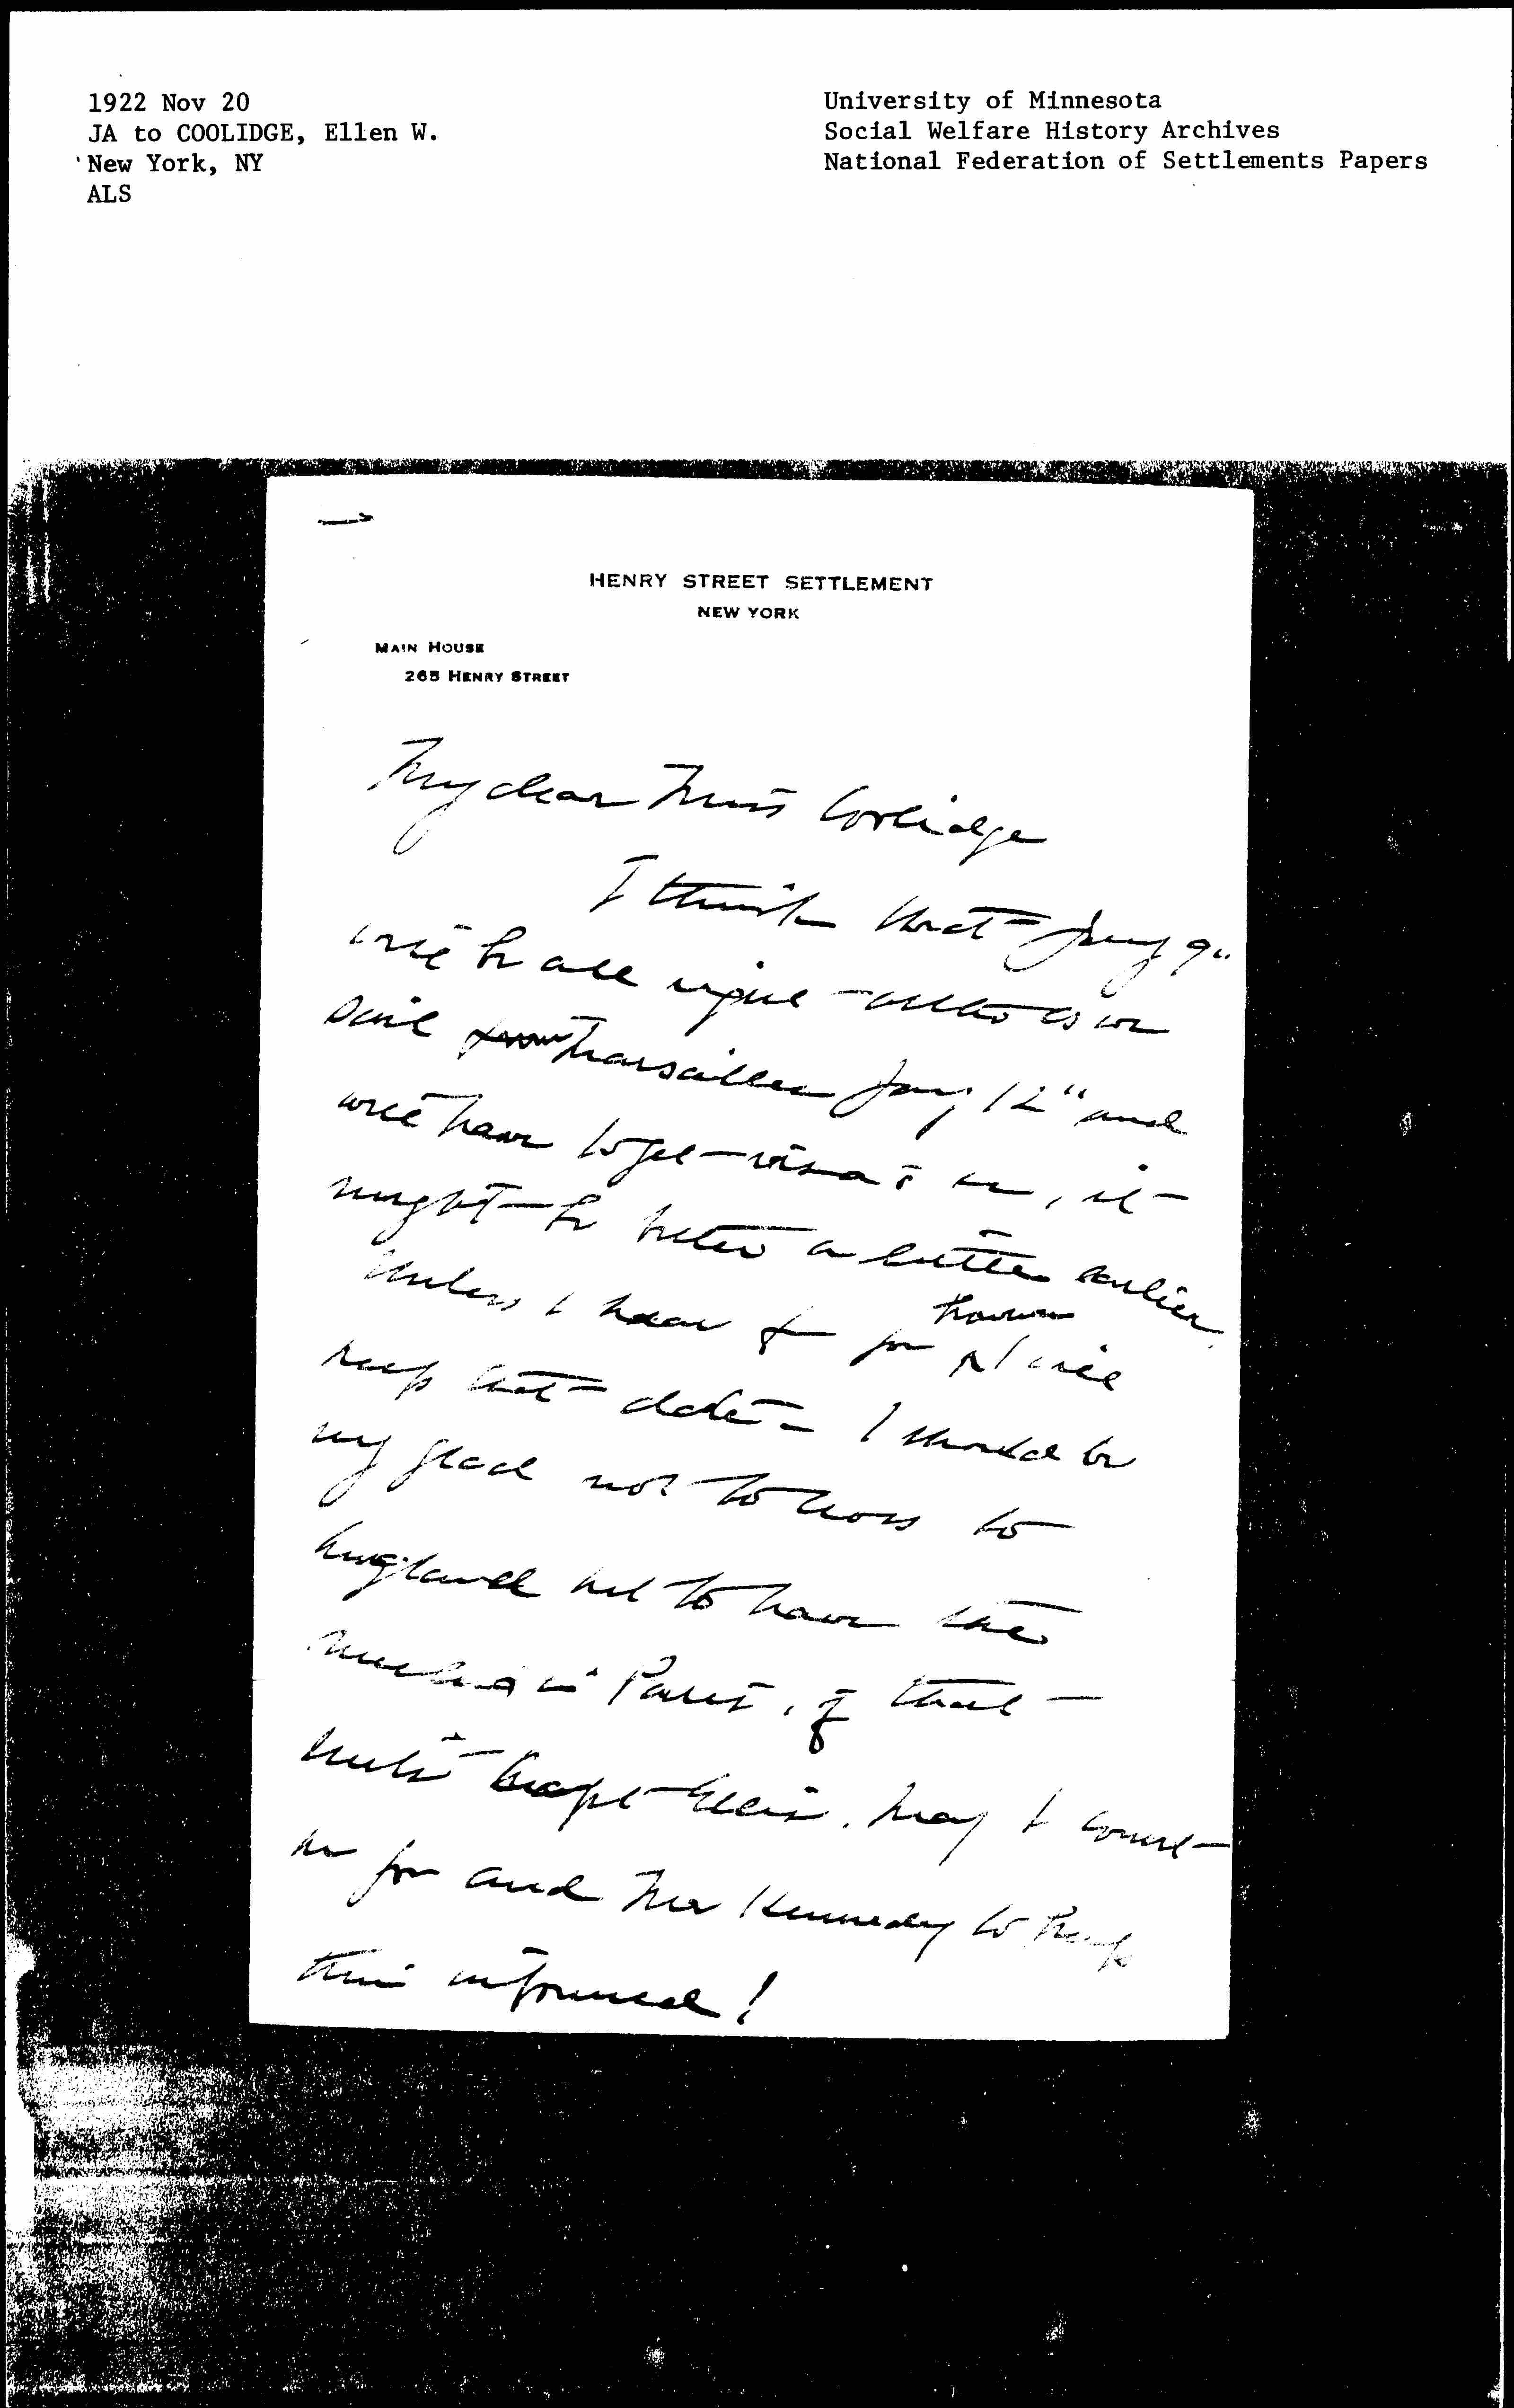 1922 Nov 20
JA to COOLIDGE, Ellen W.
New York, NY
ALS
University of Minnesota
Social Welfare History Archives
National Federation of Settlements Papers
HENRY STREET SETTLEMENT
NEW YORK
MAIN HOUSE
265 HENRY STREET
My dear Miss Coolidge
I think that Jany 9"
will be all right - altho as we
sail from Marsailles Jany 12" and
will have to get visas, it
might be better a little earlier.
Unless I hear from you I will
keep that date - I should be
very glad not to cross to
England but to have the
in Paris, if that
suits Capt Ellis. May I count
on you and Mr Kennedy to keep
them informed!